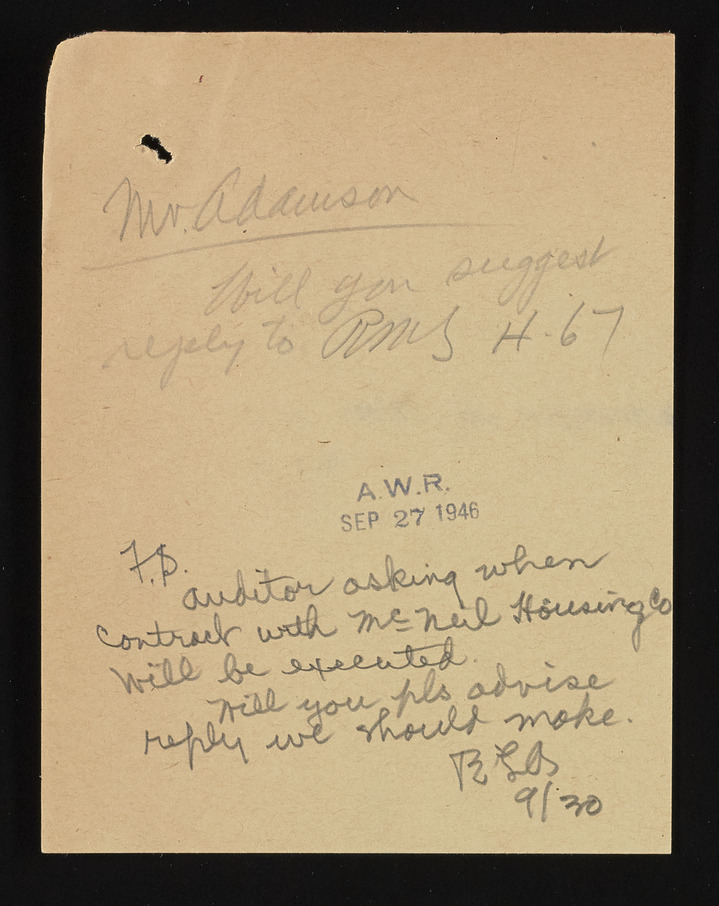 Mr. Adamson
Will you suggest
reply to RMS H-67
A.W.R.
SEP 27 1946
F.B.
auditor asking when
contract with McNeil Housing Co
will be executed.
Will you pls advise
reply we should make.
9/30